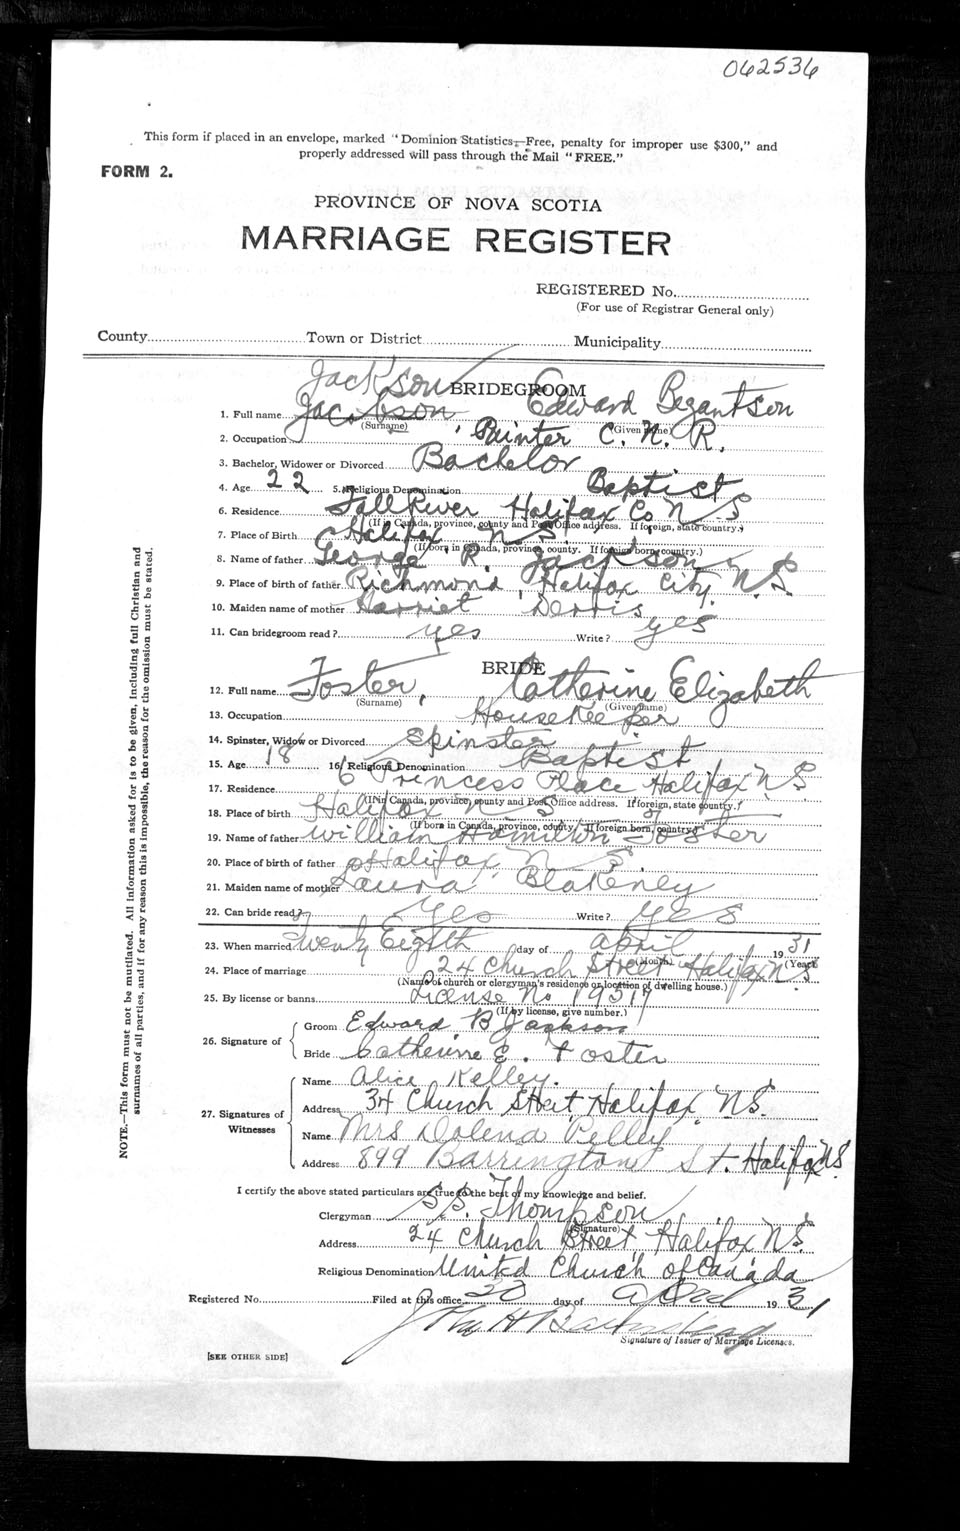 062536
This form if placed in an envelope, marked "Dominion Statistics—Free, penalty for improper use $300," and
properly addressed will pass through the Mail "FREE."
FORM 2.
PROVINCE OF NOVA SCOTIA
MARRIAGE REGISTER
REGISTERED No.
(For use of Registrar General only)
County Town or District Municipality
Jackson BRIDEGROOM
1. Full name Jackson Edward
(Surname) (Given name)
2. Occupation Painter C. N. R.
3. Bachelor, Widower or Divorced Bachelor
4. Age 22 5. Religious Denomination Baptist
6. Residence Fall River Halifax Co N S
(If in Canada, province, county and Post Office address. If foreign, state country.)
7. Place of Birth Halifax N S
(If born in Canada, province, county. If foreign born, country.)
8. Name of father George R. Jackson
9. Place of birth of father Richmond, Halifax City. N.S.
10. Maiden name of mother Harriet
11. Can bridegroom read? yes Write? yes
BRIDE
12. Full name Foster, Catherine Elizabeth
(Surname) (Given name)
13. Occupation Housekeeper
14. Spinster, Widow or Divorced Spinster
15. Age 18 16. Religious Denomination Baptist
17. Residence 6 Princess Place Halifax N S
(If in Canada, province, county and Post Office address. If foreign, state country.)
18. Place of birth Halifax N S
(If born in Canada, province, county. If foreign born, country)
19. Name of father William Hamilton Foster
20. Place of birth of father Halifax N. S.
21. Maiden name of mother Laura Blakeney
22. Can bride read? Yes Write? yes
23. When married Twenty Eighth day of april 1931
(Month) (Year)
24. Place of marriage 24 Church Street Halifax N S.
(Name of church or clergyman's residence or location of dwelling house.)
25. By license or banns License No 19517
(If by license, give number.)
26. Signature of
Groom Edward B Jackson
Bride Catherine E. Foster
27. Signatures of Witnesses
Name Alice Kelley.
Address 34 Church Street Halifax N.S.
Name Mrs Dolena Pelley
Address 899 Barrington St. Halifax N.S.
I certify the above stated particulars are true to the best of my knowledge and belief.
Clergyman S.S. Thompson
(Signature)
Address 24 Church Street Halifax N.S.
Religious Denomination United Church of Canada
Registered No. Filed at this office day of April 1931
John H
Signature of Issuer of Marriage Licenses.
[SEE OTHER SIDE]
NOTE.—This form must not be mutilated. All information asked for is to be given, including full Christian and
surnames of all parties, and if for any reason this is impossible, the reason for the omission must be stated.